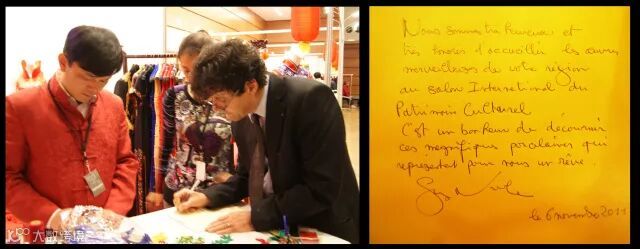 Nous sommes très heureux et
très honorés d'accueillir les œuvres
merveilleuses de votre région
au salon International du
Patrimoine Culturel
C'est un bonheur de découvrir
ces magnifiques porcelaines qui
représentent pour nous un rêve.
le 6 novembre 2011
大数跨境